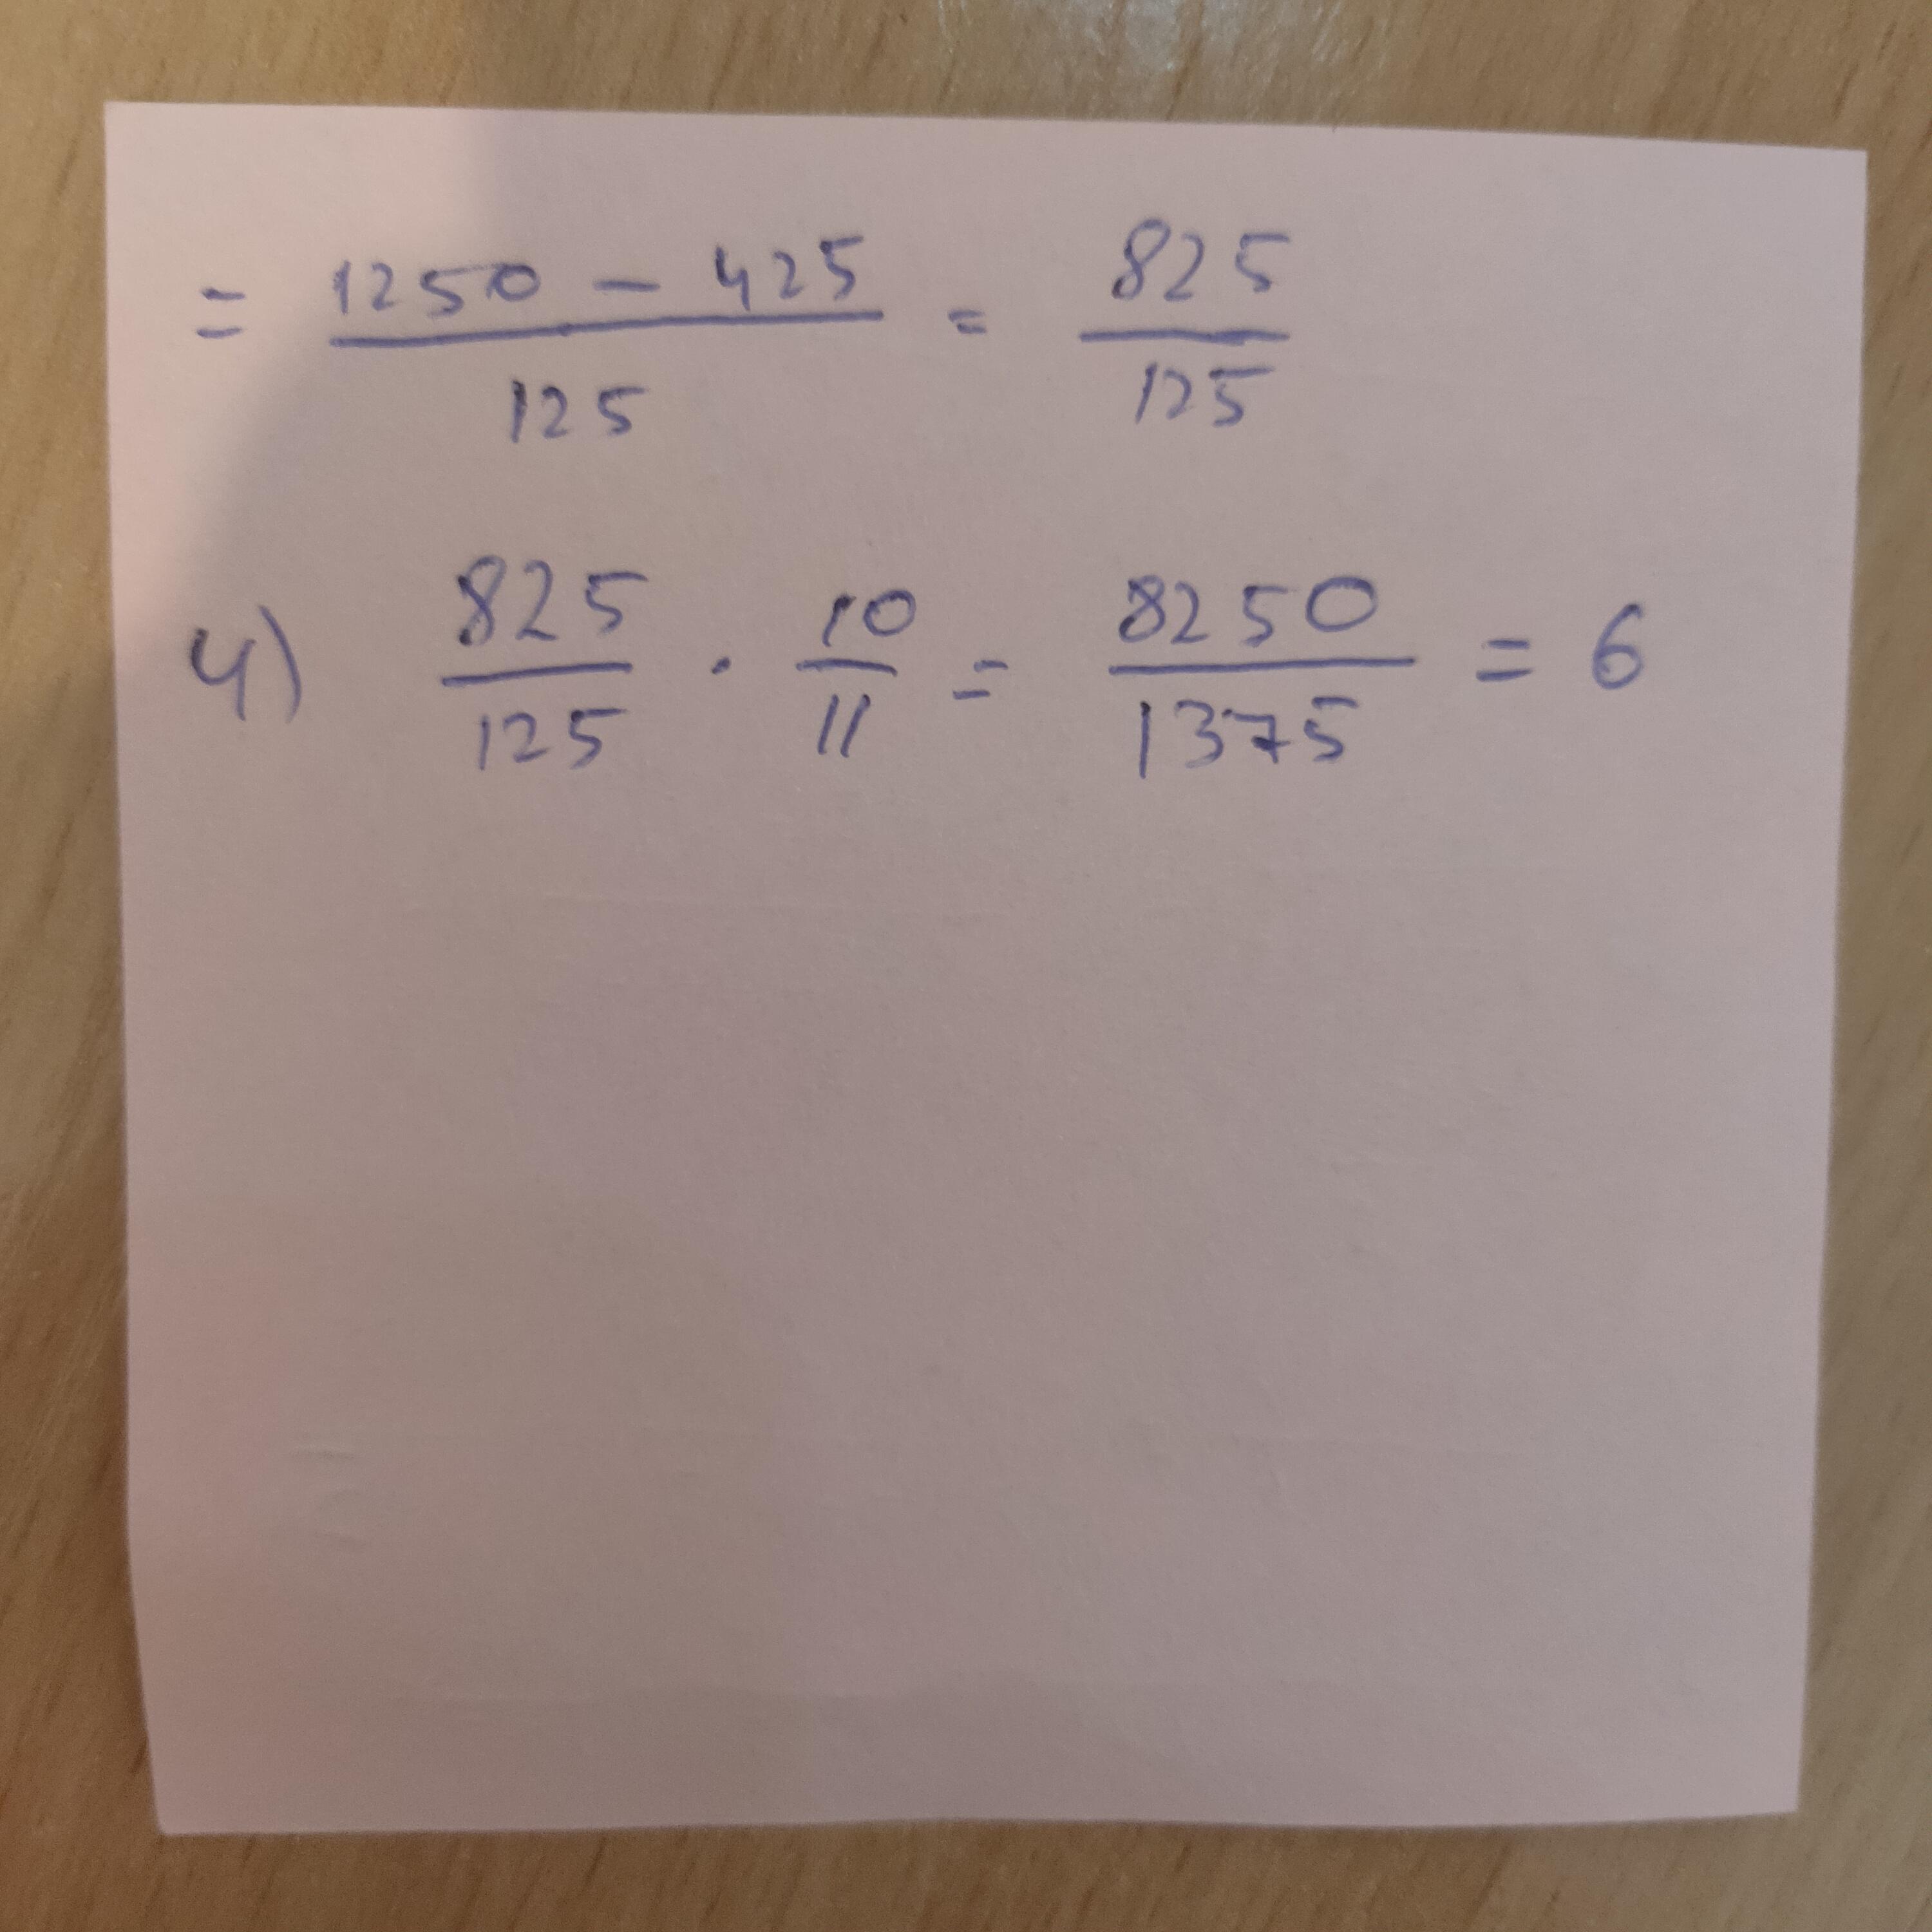 = (1250 - 425)/125 = 825/125
4) 825/125 · 10/11 = 8250/1375 = 6